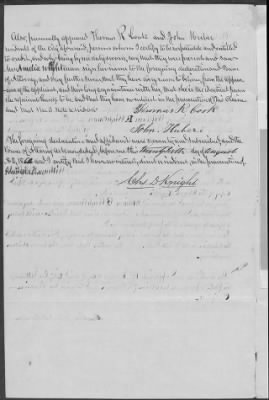 Also, personally appeared Thomas R. Cook and John Huber
residents of the city aforesaid, persons whom I certify to be respectable and entitled
to credit, and who being by me duly sworn, say that they were present and saw
sign her name to the foregoing declaration and Power
of Attorney, and they further swear that they have every reason to believe from the appear-
ance of the applicant, and their long acquaintance with her, that she is the identical person
she represents herself to be, and that they have no interest in the prosecution of this claim
Thomas R. Cook
John Huber
The foregoing declaration and affidavits were sworn to, and subscribed, and the
Power of Attorney acknowledged, before me this day of August
A.D. 18 and I certify that I have no interest, direct or indirect, in the prosecution of
Chas D. Knight